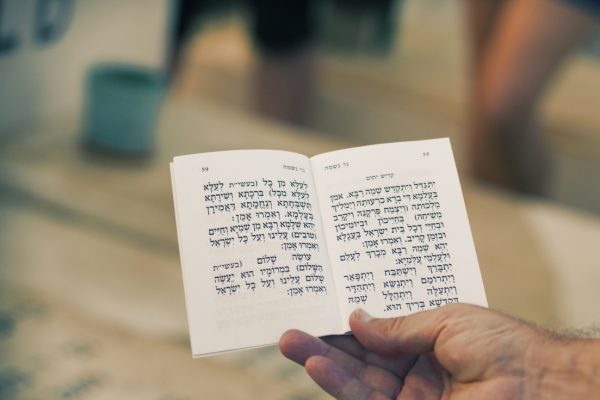 58 נר נשמה
קדיש יתום
יִתְגַּדַּל וְיִתְקַדַּשׁ שְׁמֵהּ רַבָּא. אמן
בְּעָלְמָא דִּי בְרָא כִרְעוּתֵהּ וְיַמְלִיךְ
מַלְכוּתֵהּ (וְיַצְמַח פֻּרְקָנֵהּ וִיקָרֵב
מְשִׁיחֵהּ) בְּחַיֵּיכוֹן וּבְיוֹמֵיכוֹן
וּבְחַיֵּי דְכָל בֵּית יִשְׂרָאֵל בַּעֲגָלָא
וּבִזְמַן קָרִיב, וְאִמְרוּ אָמֵן:
יְהֵא שְׁמֵהּ רַבָּא מְבָרַךְ לְעָלַם
וּלְעָלְמֵי עָלְמַיָּא:
יִתְבָּרַךְ וְיִשְׁתַּבַּח וְיִתְפָּאַר
וְיִתְרוֹמַם וְיִתְנַשֵּׂא וְיִתְהַדָּר
וְיִתְעַלֶּה וְיִתְהַלָּל שְׁמֵהּ
דְּקֻדְשָׁא בְּרִיךְ הוּא.
נר נשמה 59
לְעֵלָּא מִן כָּל (בעשי״ת לְעֵלָּא
לְעֵלָּא מִכָּל) בִּרְכָתָא וְשִׁירָתָא
תֻּשְׁבְּחָתָא וְנֶחֱמָתָא דַּאֲמִירָן
בְּעָלְמָא. וְאִמְרוּ אָמֵן:
יְהֵא שְׁלָמָא רַבָּא מִן שְׁמַיָּא וְחַיִּים
(טוֹבִים) עָלֵינוּ וְעַל כָּל יִשְׂרָאֵל
וְאִמְרוּ אָמֵן:
עוֹשֶׂה שָׁלוֹם (בעשי״ת
הַשָּׁלוֹם) בִּמְרוֹמָיו הוּא יַעֲשֶׂה
שָׁלוֹם עָלֵינוּ וְעַל כָּל יִשְׂרָאֵל
וְאִמְרוּ אָמֵן: